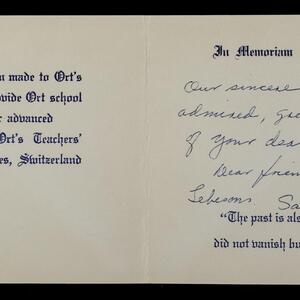 n made to Ort's
ovide Ort school
r advanced
Ort's Teachers'
es, Switzerland
In Memoriam
Our sincere
admired, gre
of your dea
Dear frien
Sa
"The past is als
did not vanish bu